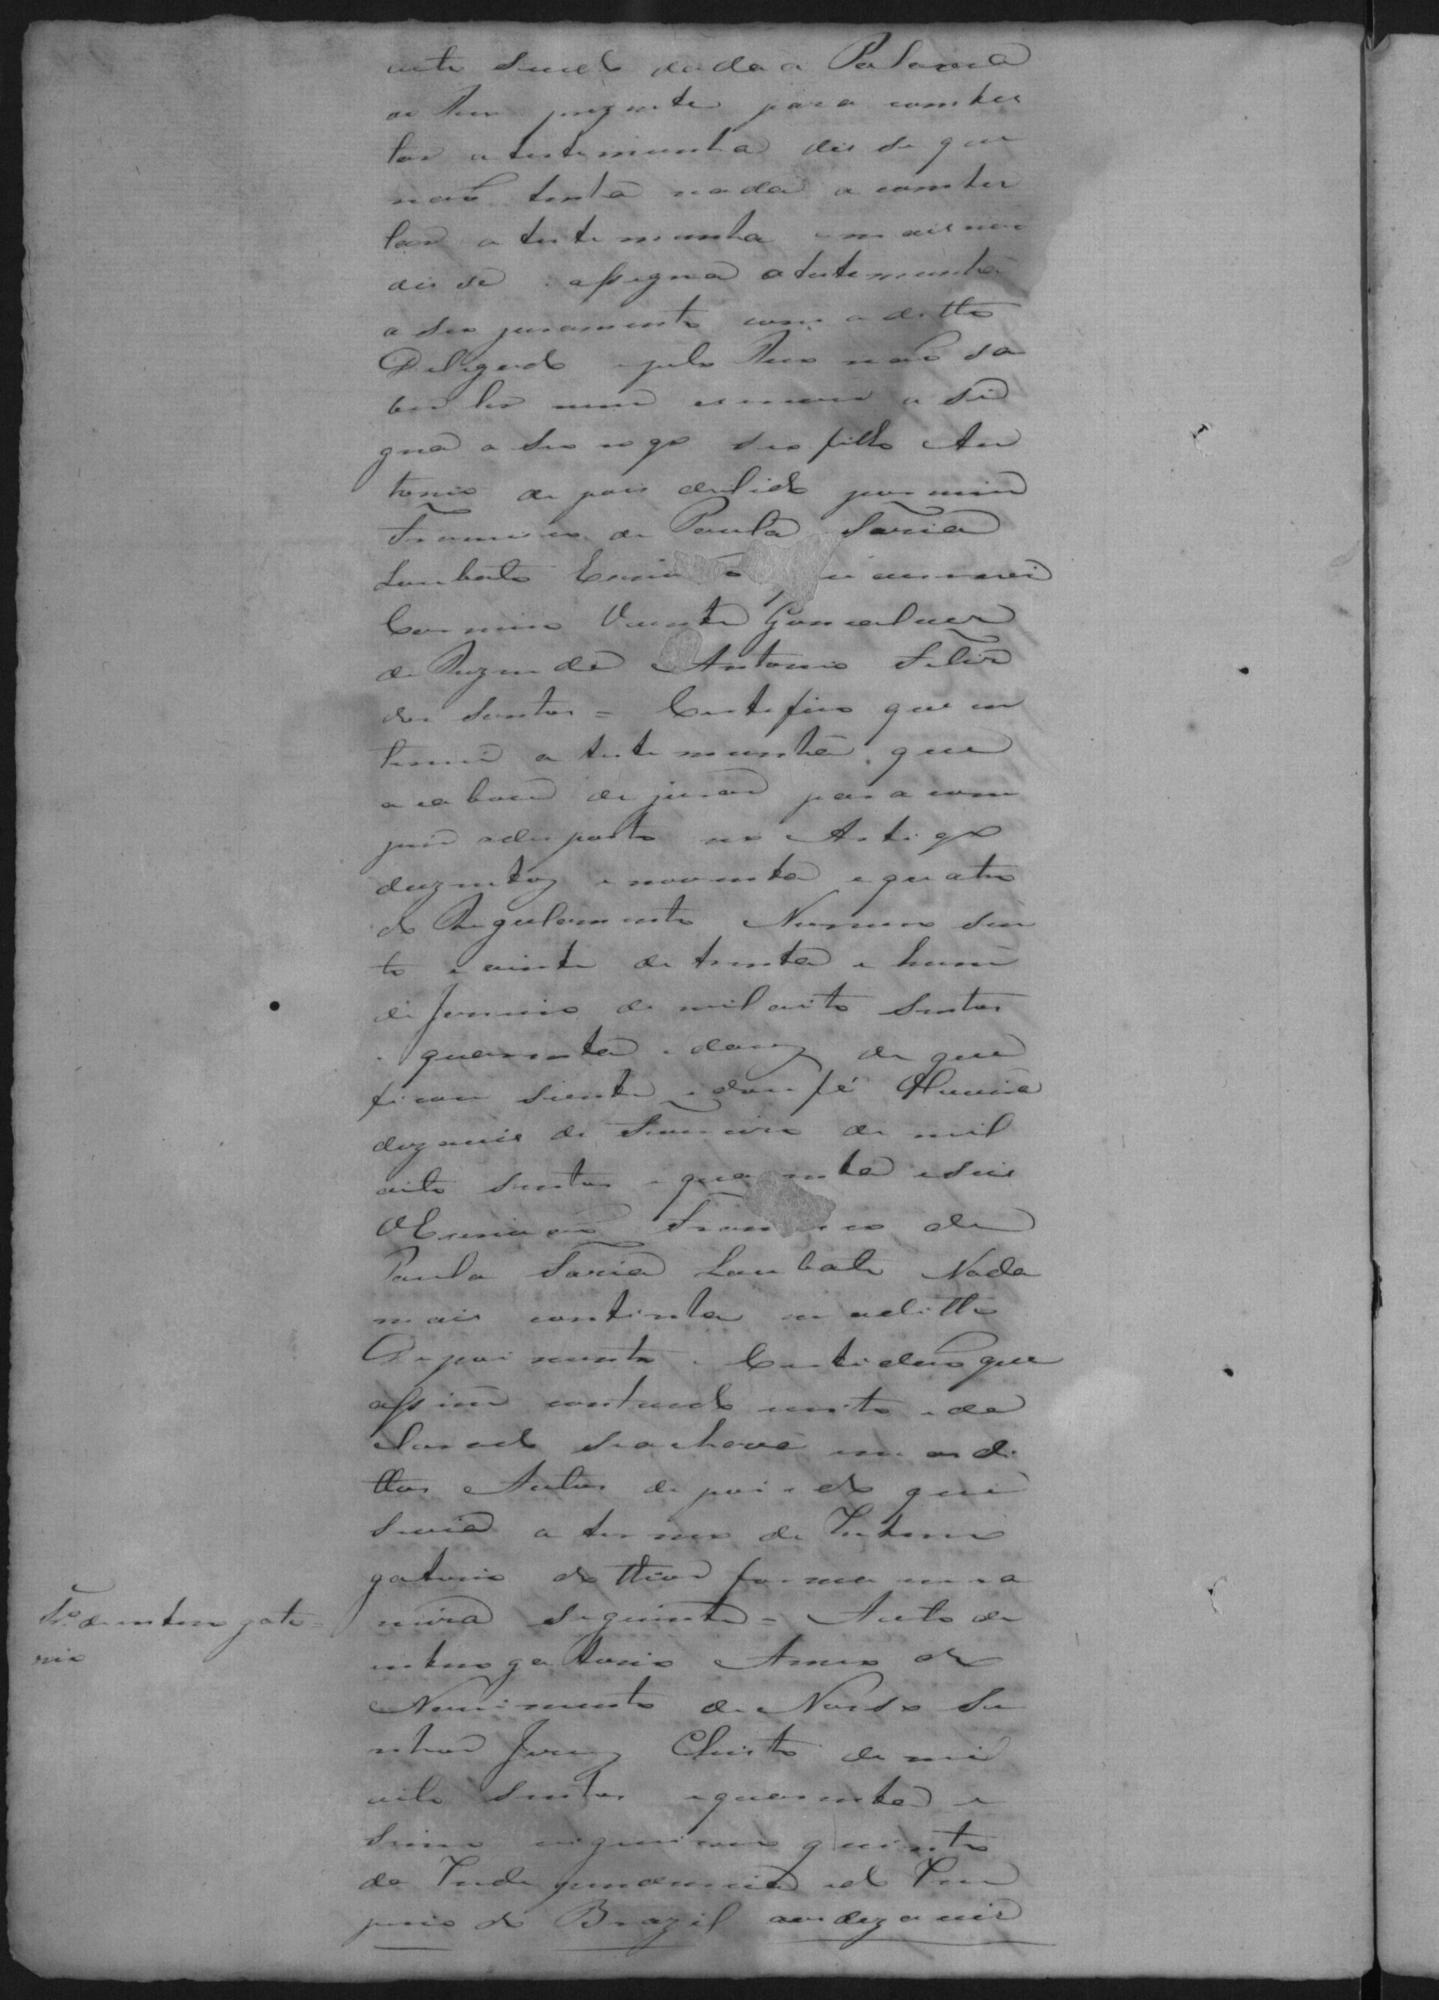 e sendo dada a Palavra
ao Reo prezente para contes
tar a testemunha disse que
não tinha nada a contes
tar a testemunha e mais não
disse assigna a testemunha
a seo juramento com o ditto
Delegado e pelo Reo não sa
ber ler nem escrever asi
gna a seo rogo seo filho An
tonio depois de lido por mim
Francisco de Paula Faria
Lambato Escrivão que escrevi
Carneiro Vicente Gonsalves
de Rezende Antonio Felis
dos Santos = Certefico que in
timei a testemunha que
acaba de jurar para com
prir o disposto no Artigo
duzentos e noventa e quatro
do Regulamento Numero sen
to e vinte de trinta e hum
de Janeiro de mil oito sentos
e quarenta e dous de que
ficou siente e dou fé
dezaseis de Fevereiro de mil
oito sentos e quarenta e seis
O Escrivão Francisco de
Paula Faria Lambato Nada
mais continha em o ditto
Depoimento e Certidão que
assim contiudo escrito e de
clarado se achava em os di
ttos Autos depois do que
se via o termo de Interro
gatorio do theor forma e ma
neira seguinte = Auto de
interrogatorio Anno do
Nascimento de Nosso Se
nhor Jezus Christo de mil
oito sentos e quarenta e
seis vigesimo quinto
da Independencia e do Im
perio do Brazil aos dezaseis
Tr.º de interrogato=
rio